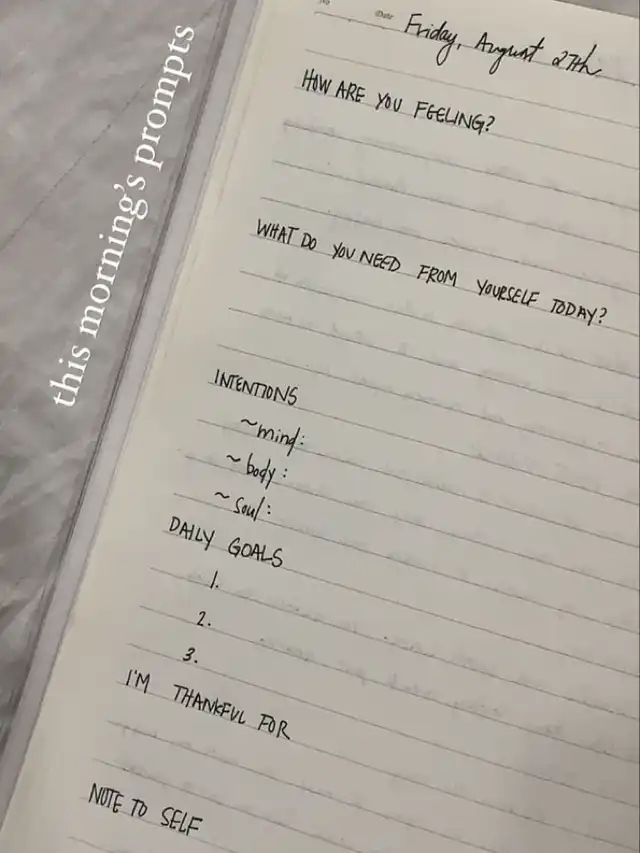 this morning's prompts
No
Date
Friday, August 27th
HOW ARE YOU FEELING?
WHAT DO YOU NEED FROM YOURSELF TODAY?
INTENTIONS
~mind:
~body:
~soul:
DAILY GOALS
1.
2.
3.
I'M THANKFUL FOR
NOTE TO SELF